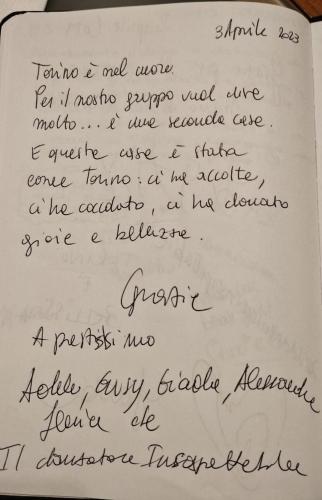 3 Aprile 2023
Torino è nel cuore.
Per il nostro gruppo vuol dire
molto... è una seconda casa.
E questa casa è stata
come Torino: ci ha accolte,
ci ha coccolato, ci ha donato
gioie e bellezze.
Grazie
A prestissimo
Giusy, Alessandra
Il